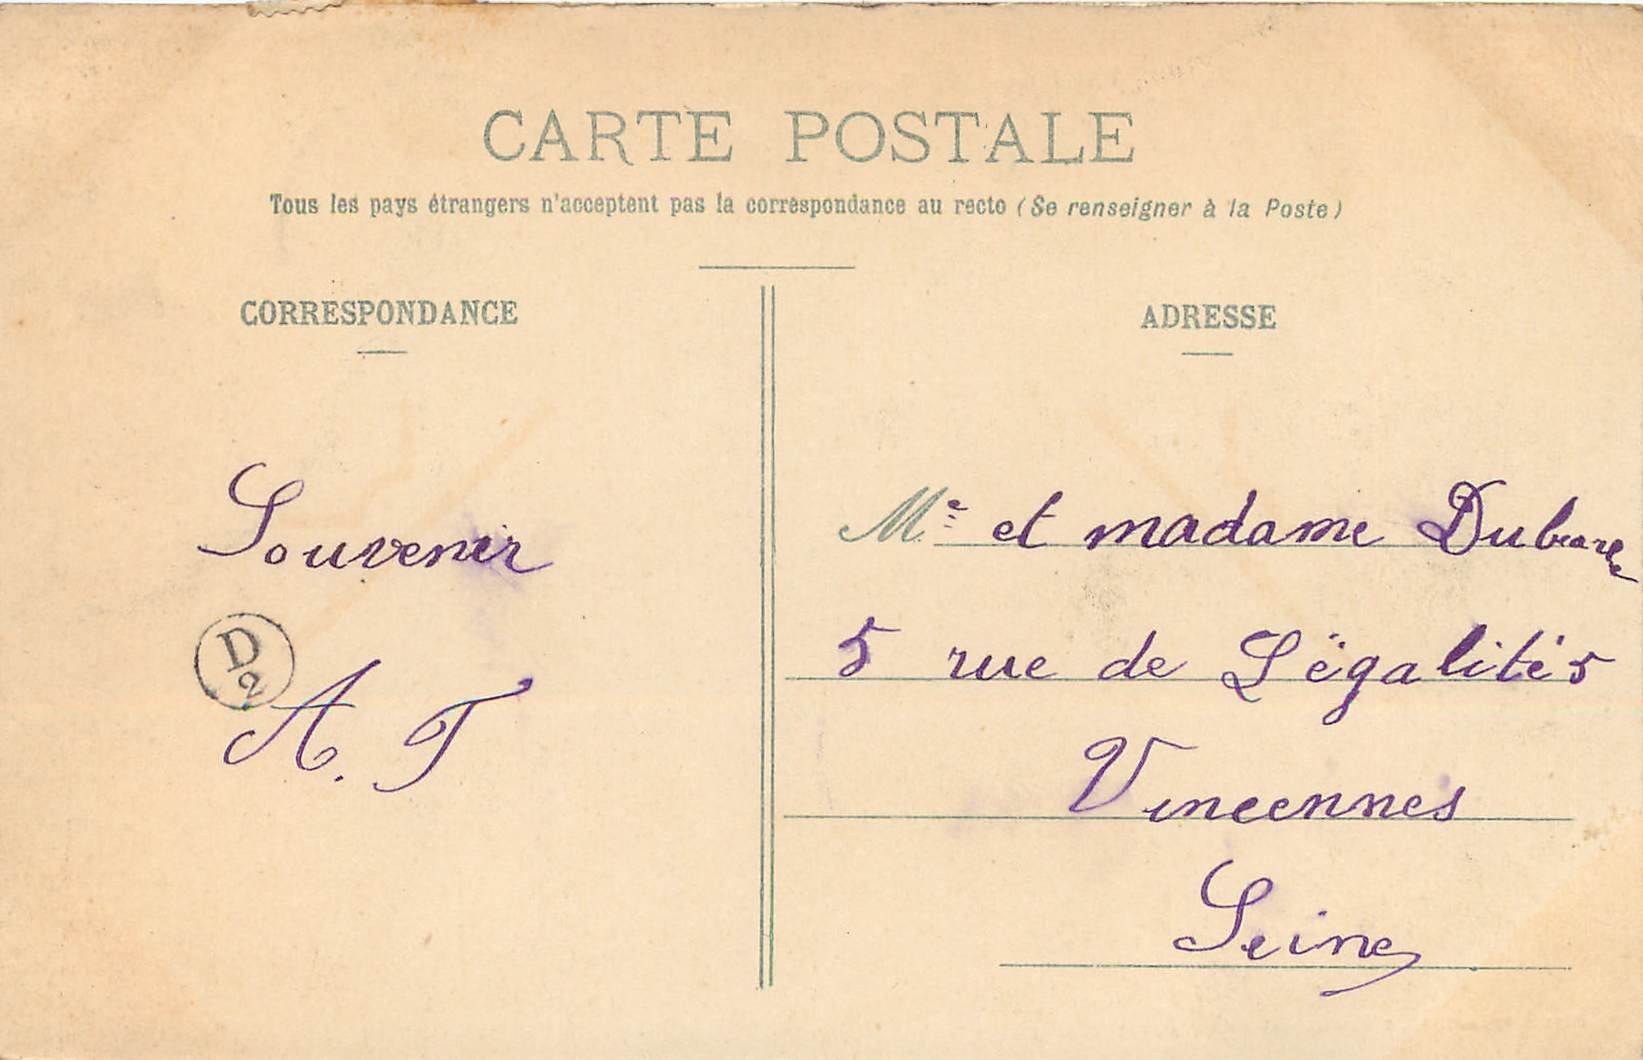 CARTE POSTALE
Tous les pays étrangers n'acceptent pas la correspondance au recto (Se renseigner à la Poste)
CORRESPONDANCE
Souvenir
D
2
A. T
ADRESSE
Me et madame
5 rue de Lëgalités
Vincennes
Seine